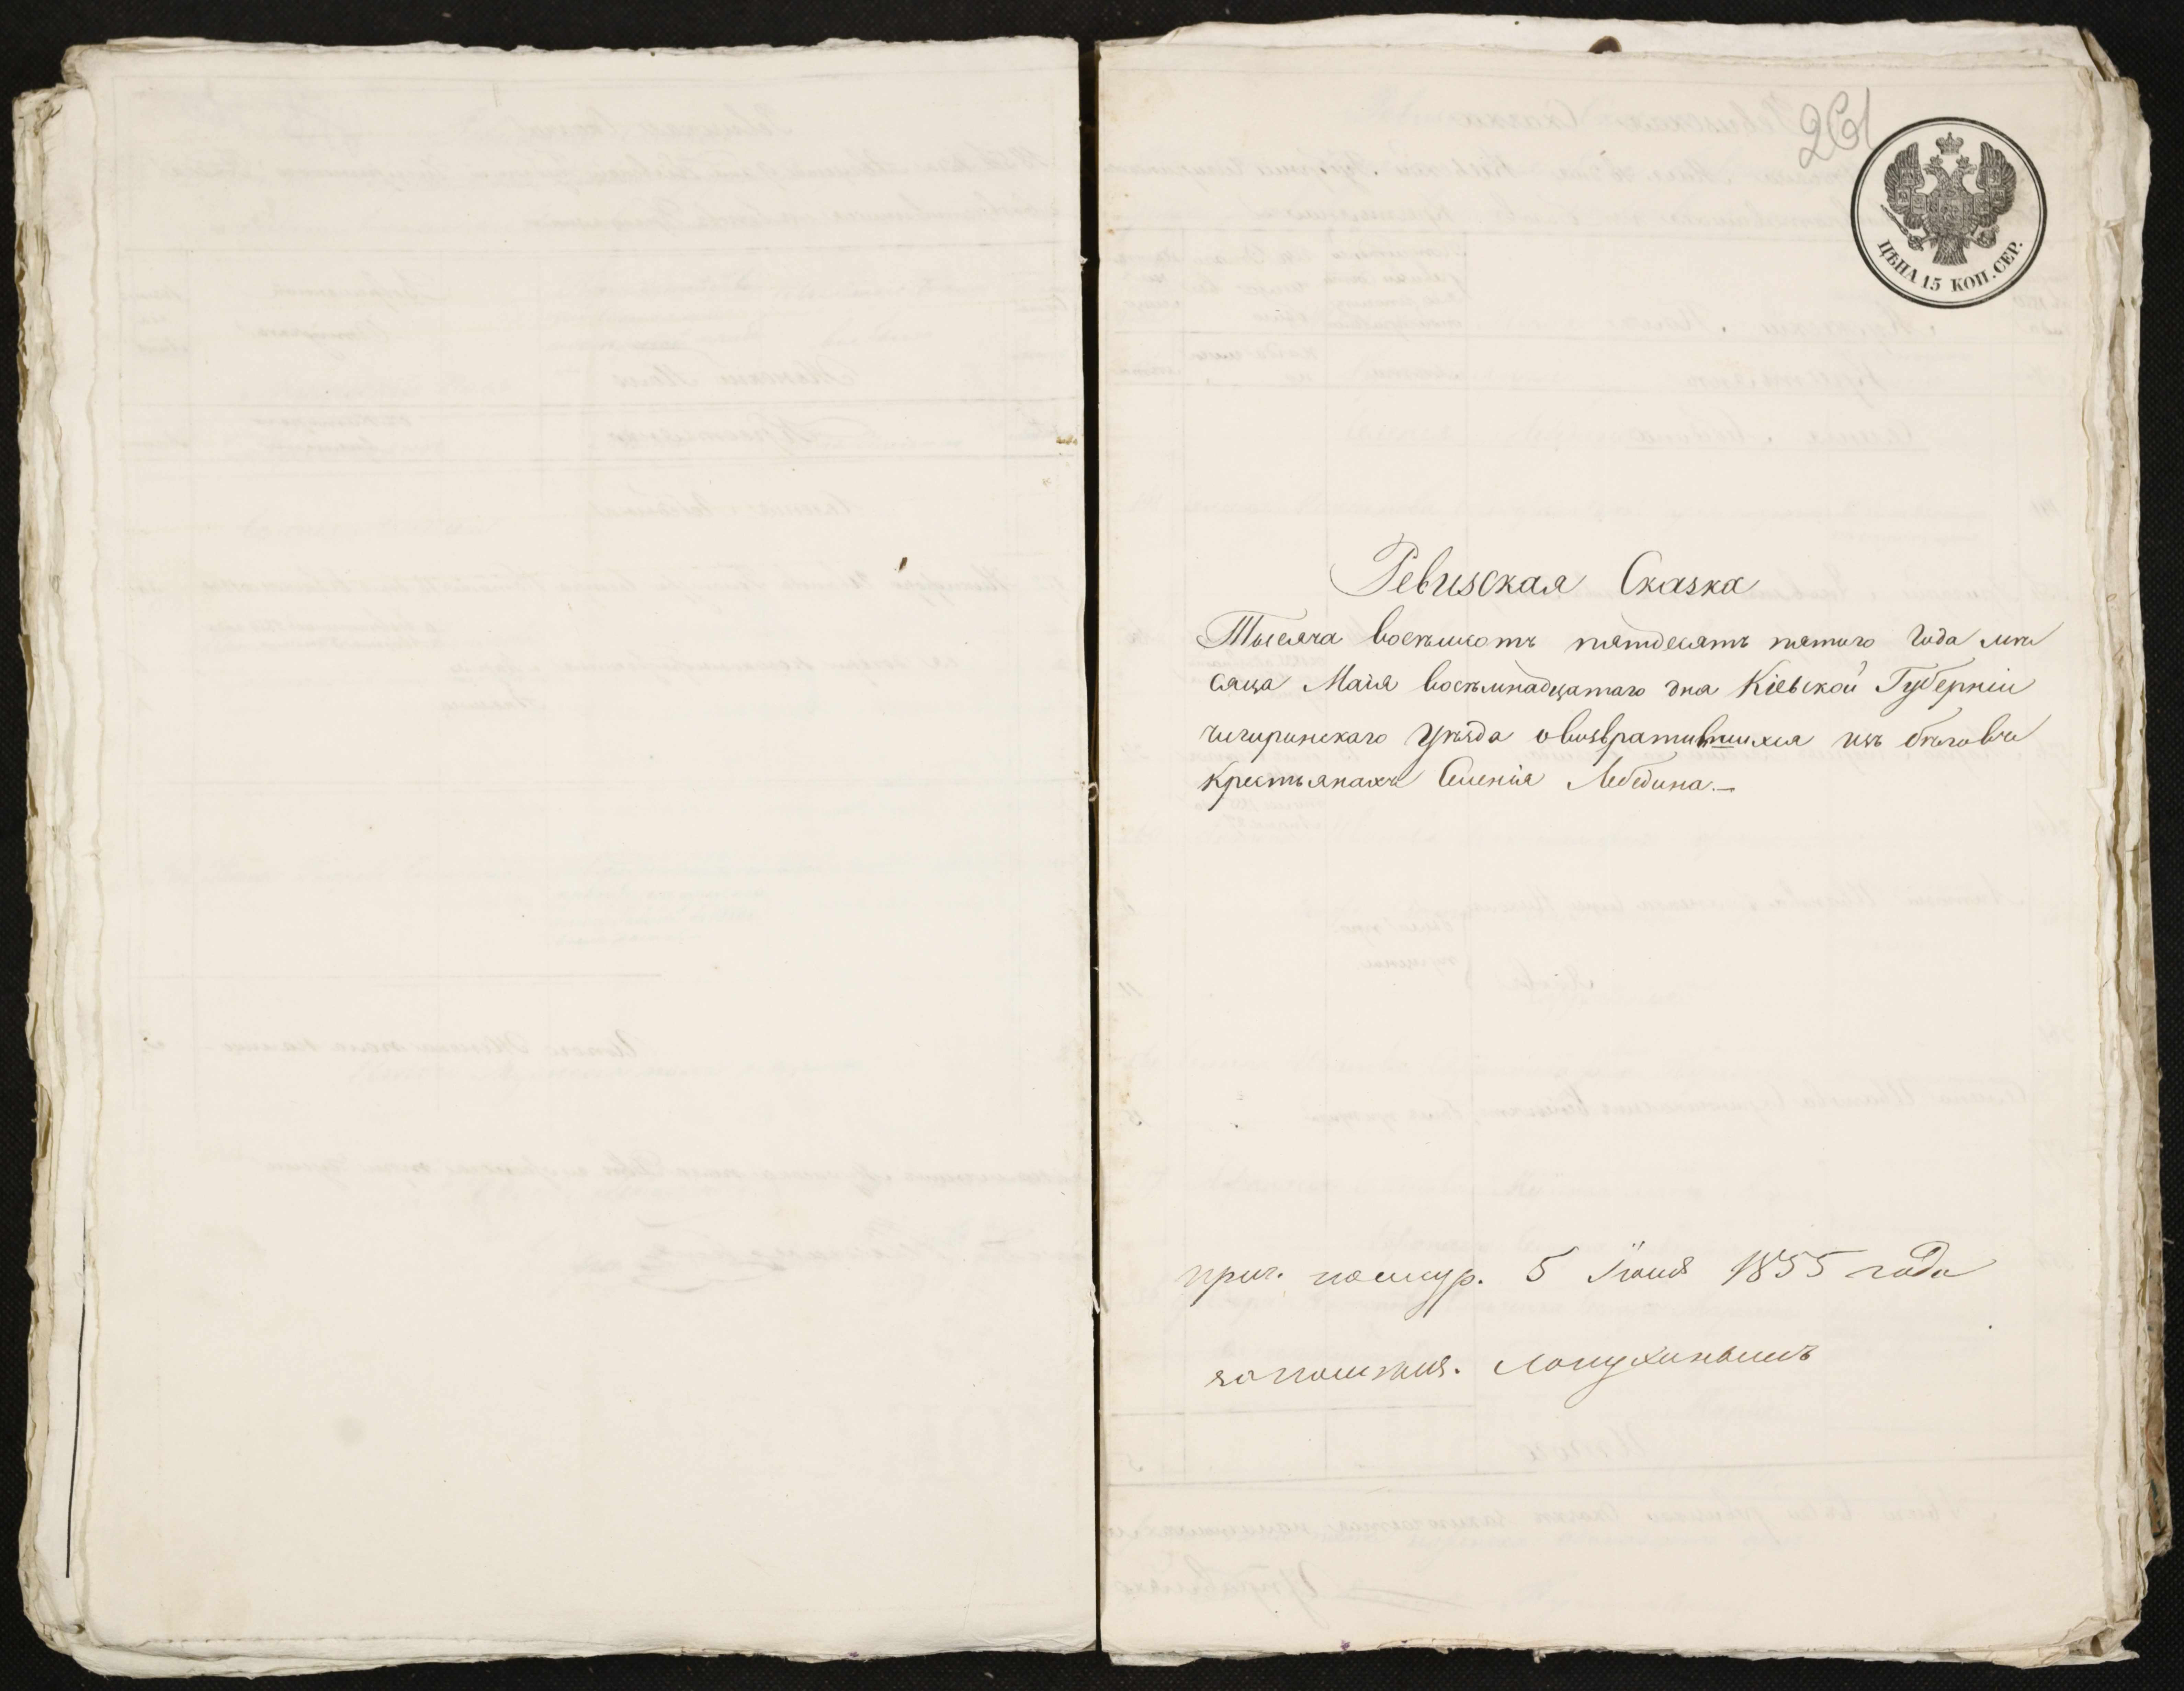 261
ЦѢНА 15 КОП. СЕР.
Ревизская Сказка
Тысяча восемьсотъ пятдесятъ пятого Года мѣ
сяца Маія восемьнадцатаго дня Кіевской Губерніи
чигиринскаго Уѣзда о возвратившихся изъ бѣговъ
крестьянахъ Селенія Лебедина.—
5 Іюня 1855 года
Лопухинымъ